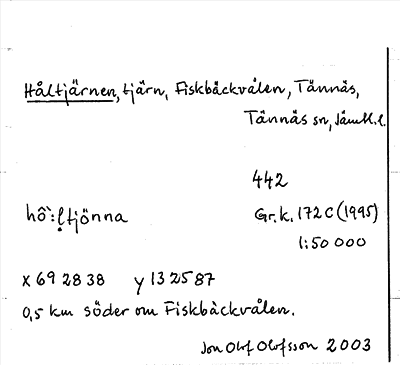 Håltjärnen, tjärn, Fiskbäckvålen, Tännäs,
Tännäs sn, Jämtl. l.
442
hô`:ḷtjönna
Gr.k. 172C (1995)
1:50 000
x 69 28 38 y 13 25 87
0,5 km söder om Fiskbäckvålen.
Jon Olof Olofsson 2003